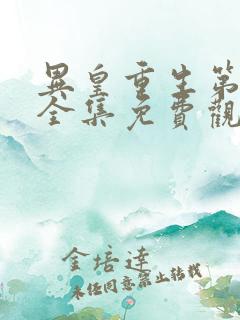 異皇重生第
全集免費觀
金培達
未經同意禁止轉載